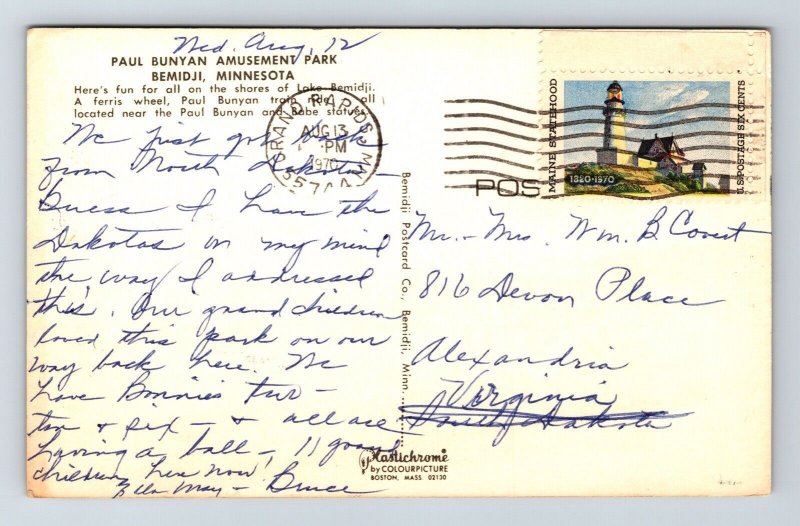 Wed. Aug, 12
PAUL BUNYAN AMUSEMENT PARK
BEMIDJI, MINNESOTA
Here's fun for all on the shores of Lake Bemidji.
A ferris wheel, Paul Bunyan train ride, all
located near the Paul Bunyan and Babe statues.
We just got back
from North Dakota -
Guess I have the
Dakotas on my mind
the way I addressed
this. Our grand children
loved this park on our
way back here. We
have Bonnies two -
ten & six - & all are
having a ball - 11 grand
children here now!
Ella May - Bruce
GRAND RAPIDS, MN
AUG 13
PM
1970
55744
MAINE STATEHOOD
1820-1970
U.S. POSTAGE SIX CENTS
POS
Mr. - Mrs. Wm. B Covert
816 Devon Place
Alexandria
Virginia
South Dakota
Bemidji Postcard Co., Bemidji, Minn.
Plastichrome
by COLOURPICTURE
BOSTON, MASS. 02130